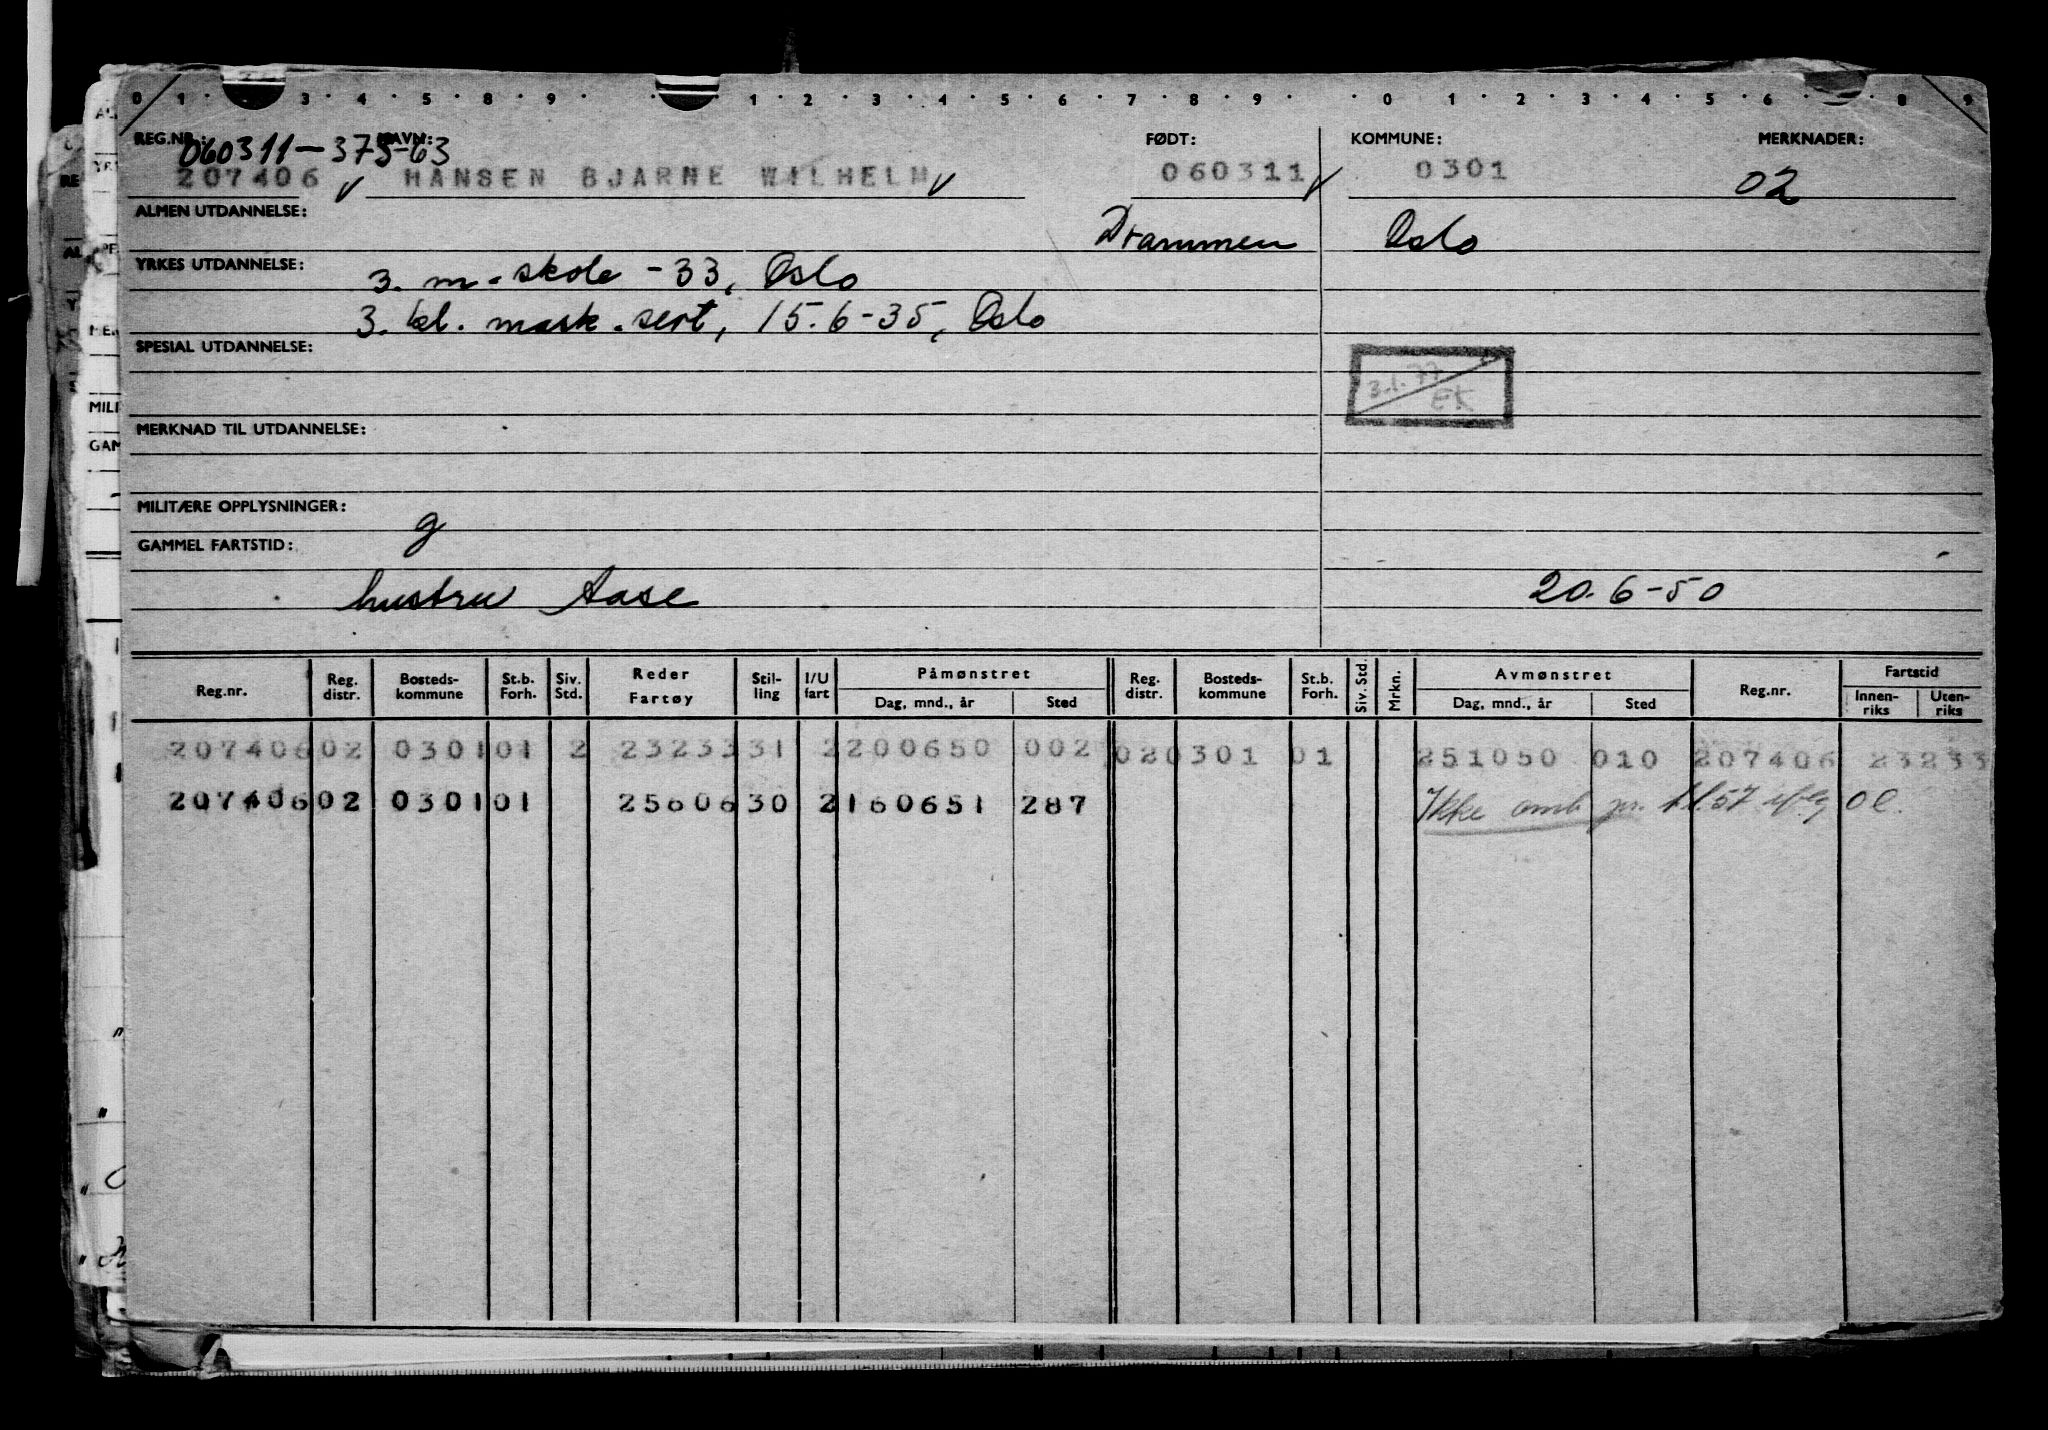 0 1 · 3 · 4 · 5 · 8 · 9 · · 1 · 2 · 3 · 4 · 5 · 6 · 7 · 8 · 9 · · 0 · 1 · 2 · 3 · 4 · 5 · 6 · 8 · 9
REG.NR.: NAVN: FØDT: KOMMUNE: MERKNADER:
060311-375-63
207406 HANSEN BJARNE WILHELM 060311 0301 02
ALMEN UTDANNELSE: Drammen Oslo
YRKES UTDANNELSE: 3. m-skole -33, Oslo
3. kl. mask.sert, 15.6-35, Oslo
SPESIAL UTDANNELSE:
3.1.77
EK
MERKNAD TIL UTDANNELSE:
MILITÆRE OPPLYSNINGER: g
GAMMEL FARTSTID:
hustru Aase 20.6-50
Reg.nr. Reg. distr. Bosteds-kommune St.b. Forh. Siv. Std. Reder Fartøy Stil-ling I/U fart Påmønstret Dag, mnd., år Sted Reg. distr. Bosteds-kommune St.b. Forh. Siv. Std. Mrkn. Avmønstret Dag, mnd., år Sted Reg.nr. Fartstid Innen-riks Uten-riks
207406 02 0301 01 2 23233 31 2 200650 002 02 0301 01 251050 010 207406 23233
207406 02 0301 01 25606 30 2 160651 287 Ikke omb pr. 1.1.57 iflg Ol.